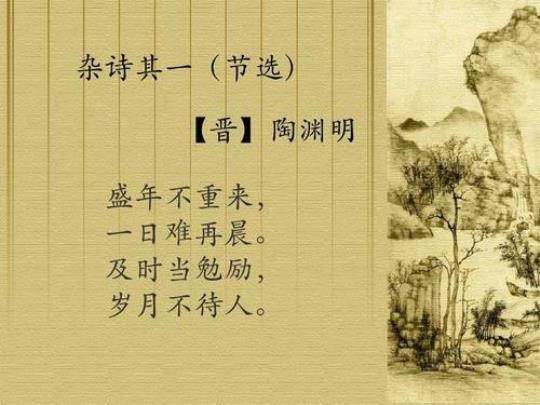 杂诗其一（节选）
【晋】陶渊明
盛年不重来，
一日难再晨。
及时当勉励，
岁月不待人。